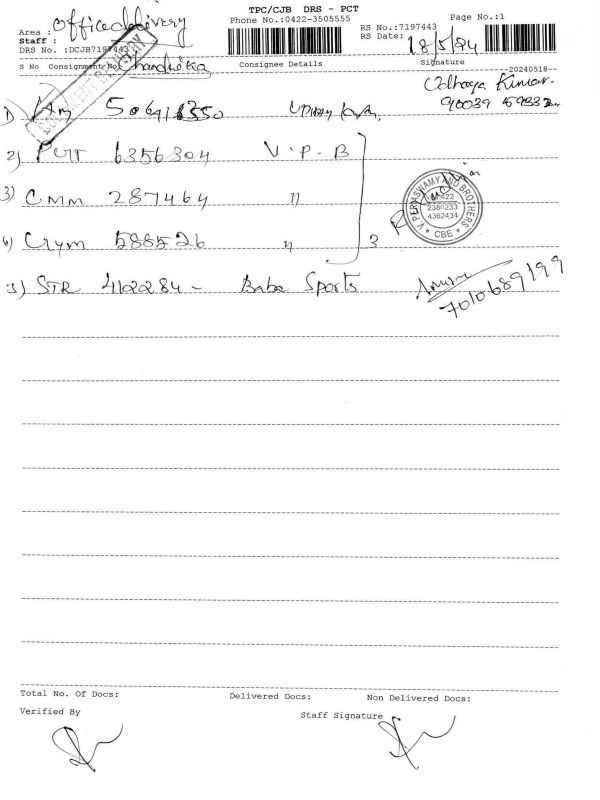 TPC/CJB DRS - PCT
Phone No.:0422-3505555
Page No.:1
Area : office delivery
RS No.:7197443
Staff :
RS Date: 18/5/24
DRS No. :DCJB7197443
--20240518--
S No Consignment No Consignee Details Signature
Udhaya Kumar
1) 506911350
90039
2) PUT 6356304 V.P.B
3) CMM 287464 "
4) 588526 " 3
V. PERIASWAMY AND BROTHERS
2380233
4362434
* CBE *
5) STR 412284 - Baba Sports
7010689199
Total No. Of Docs: Delivered Docs: Non Delivered Docs:
Verified By Staff Signature